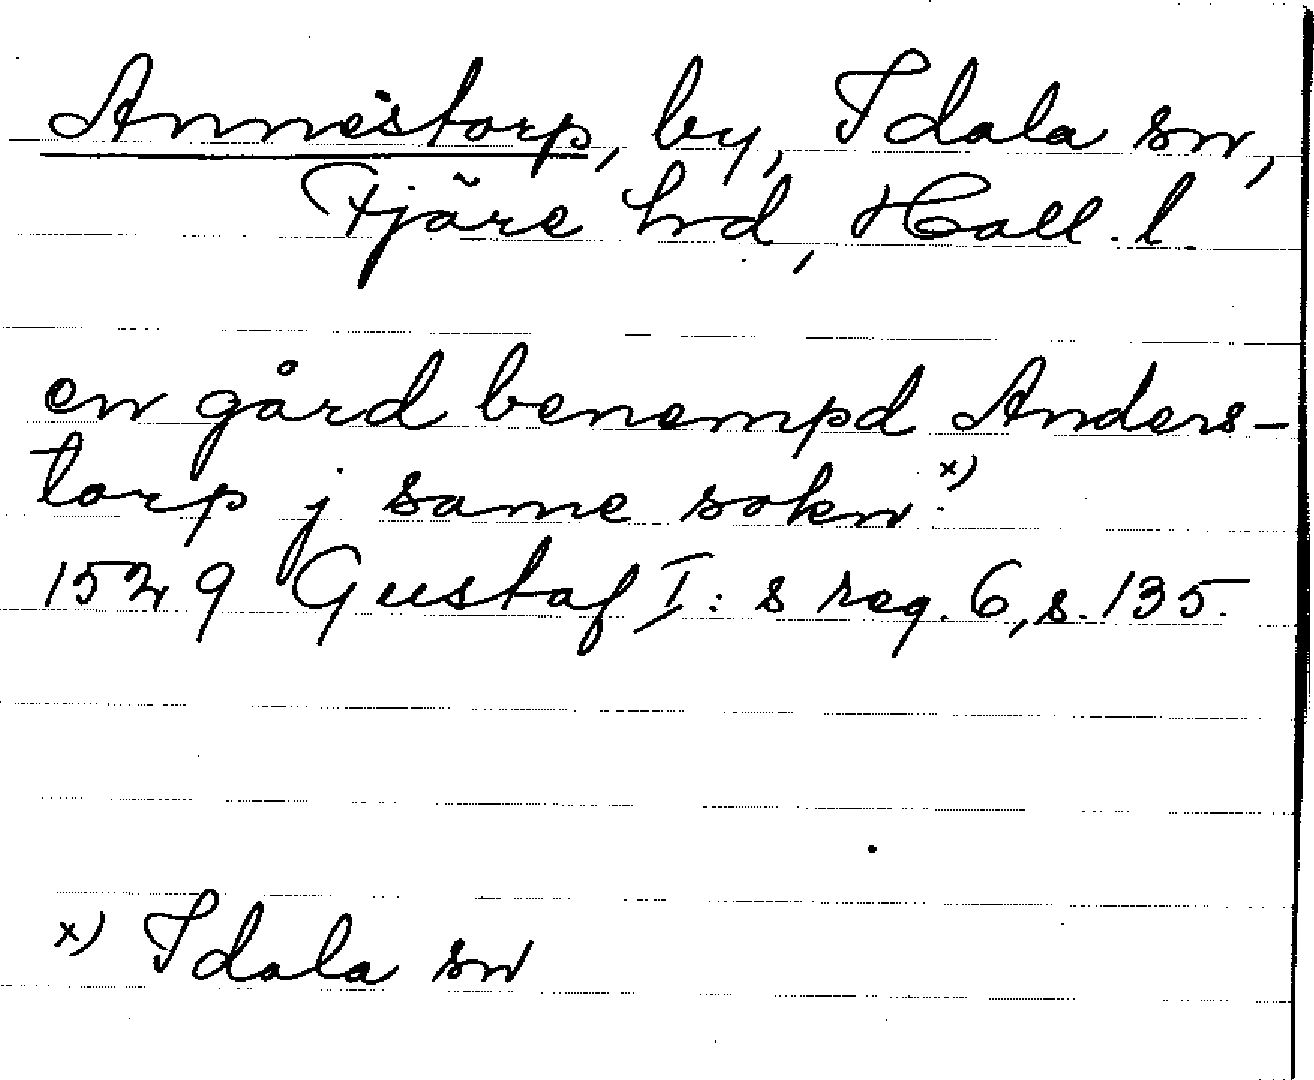 Annestorp, by, Idala sn,
Fjäre hd, Hall. l.
en gård benempd Anders-
torp j same sokn.x)
1529 Gustaf I:s reg. 6, s. 135.
x) Idala sn